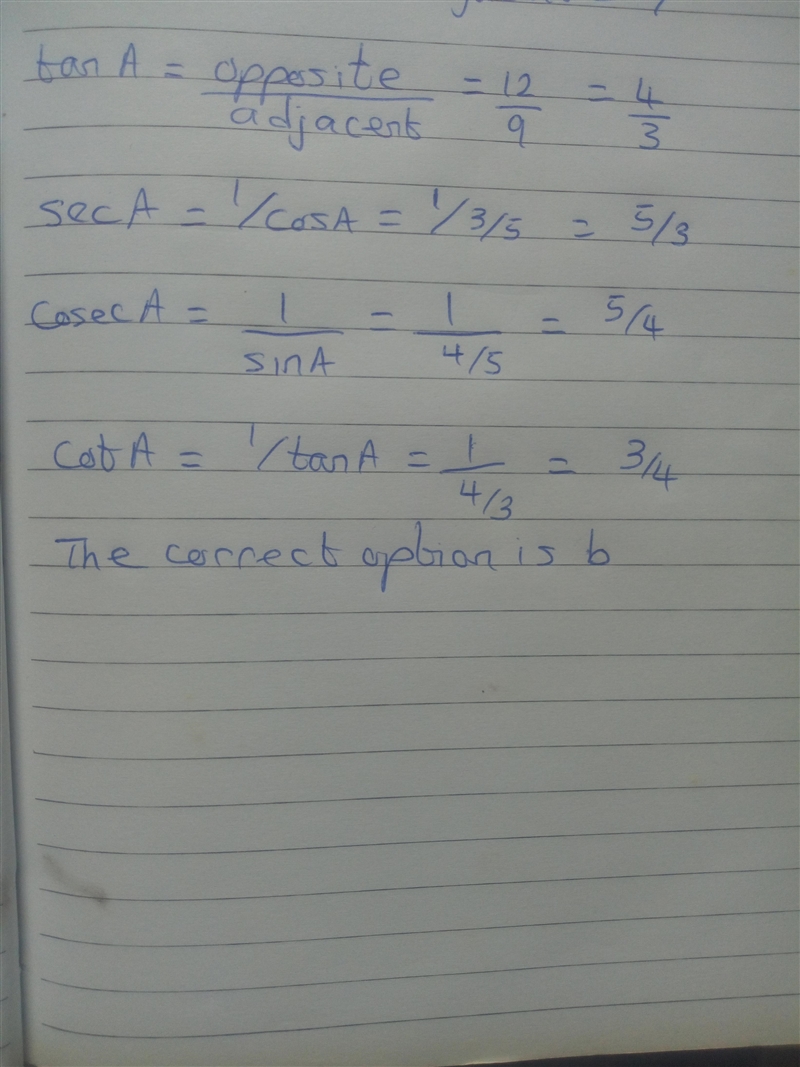 tan A = opposite/adjacent = 12/9 = 4/3
secA = 1/cosA = 1/3/5 = 5/3
CosecA = 1/sinA = 1/4/5 = 5/4
Cot A = 1/tanA = 1/4/3 = 3/4
The correct option is b